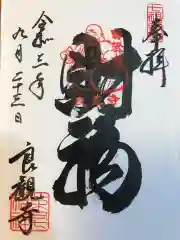 奉拝
福
令和三年
九月二十三日
良観寺